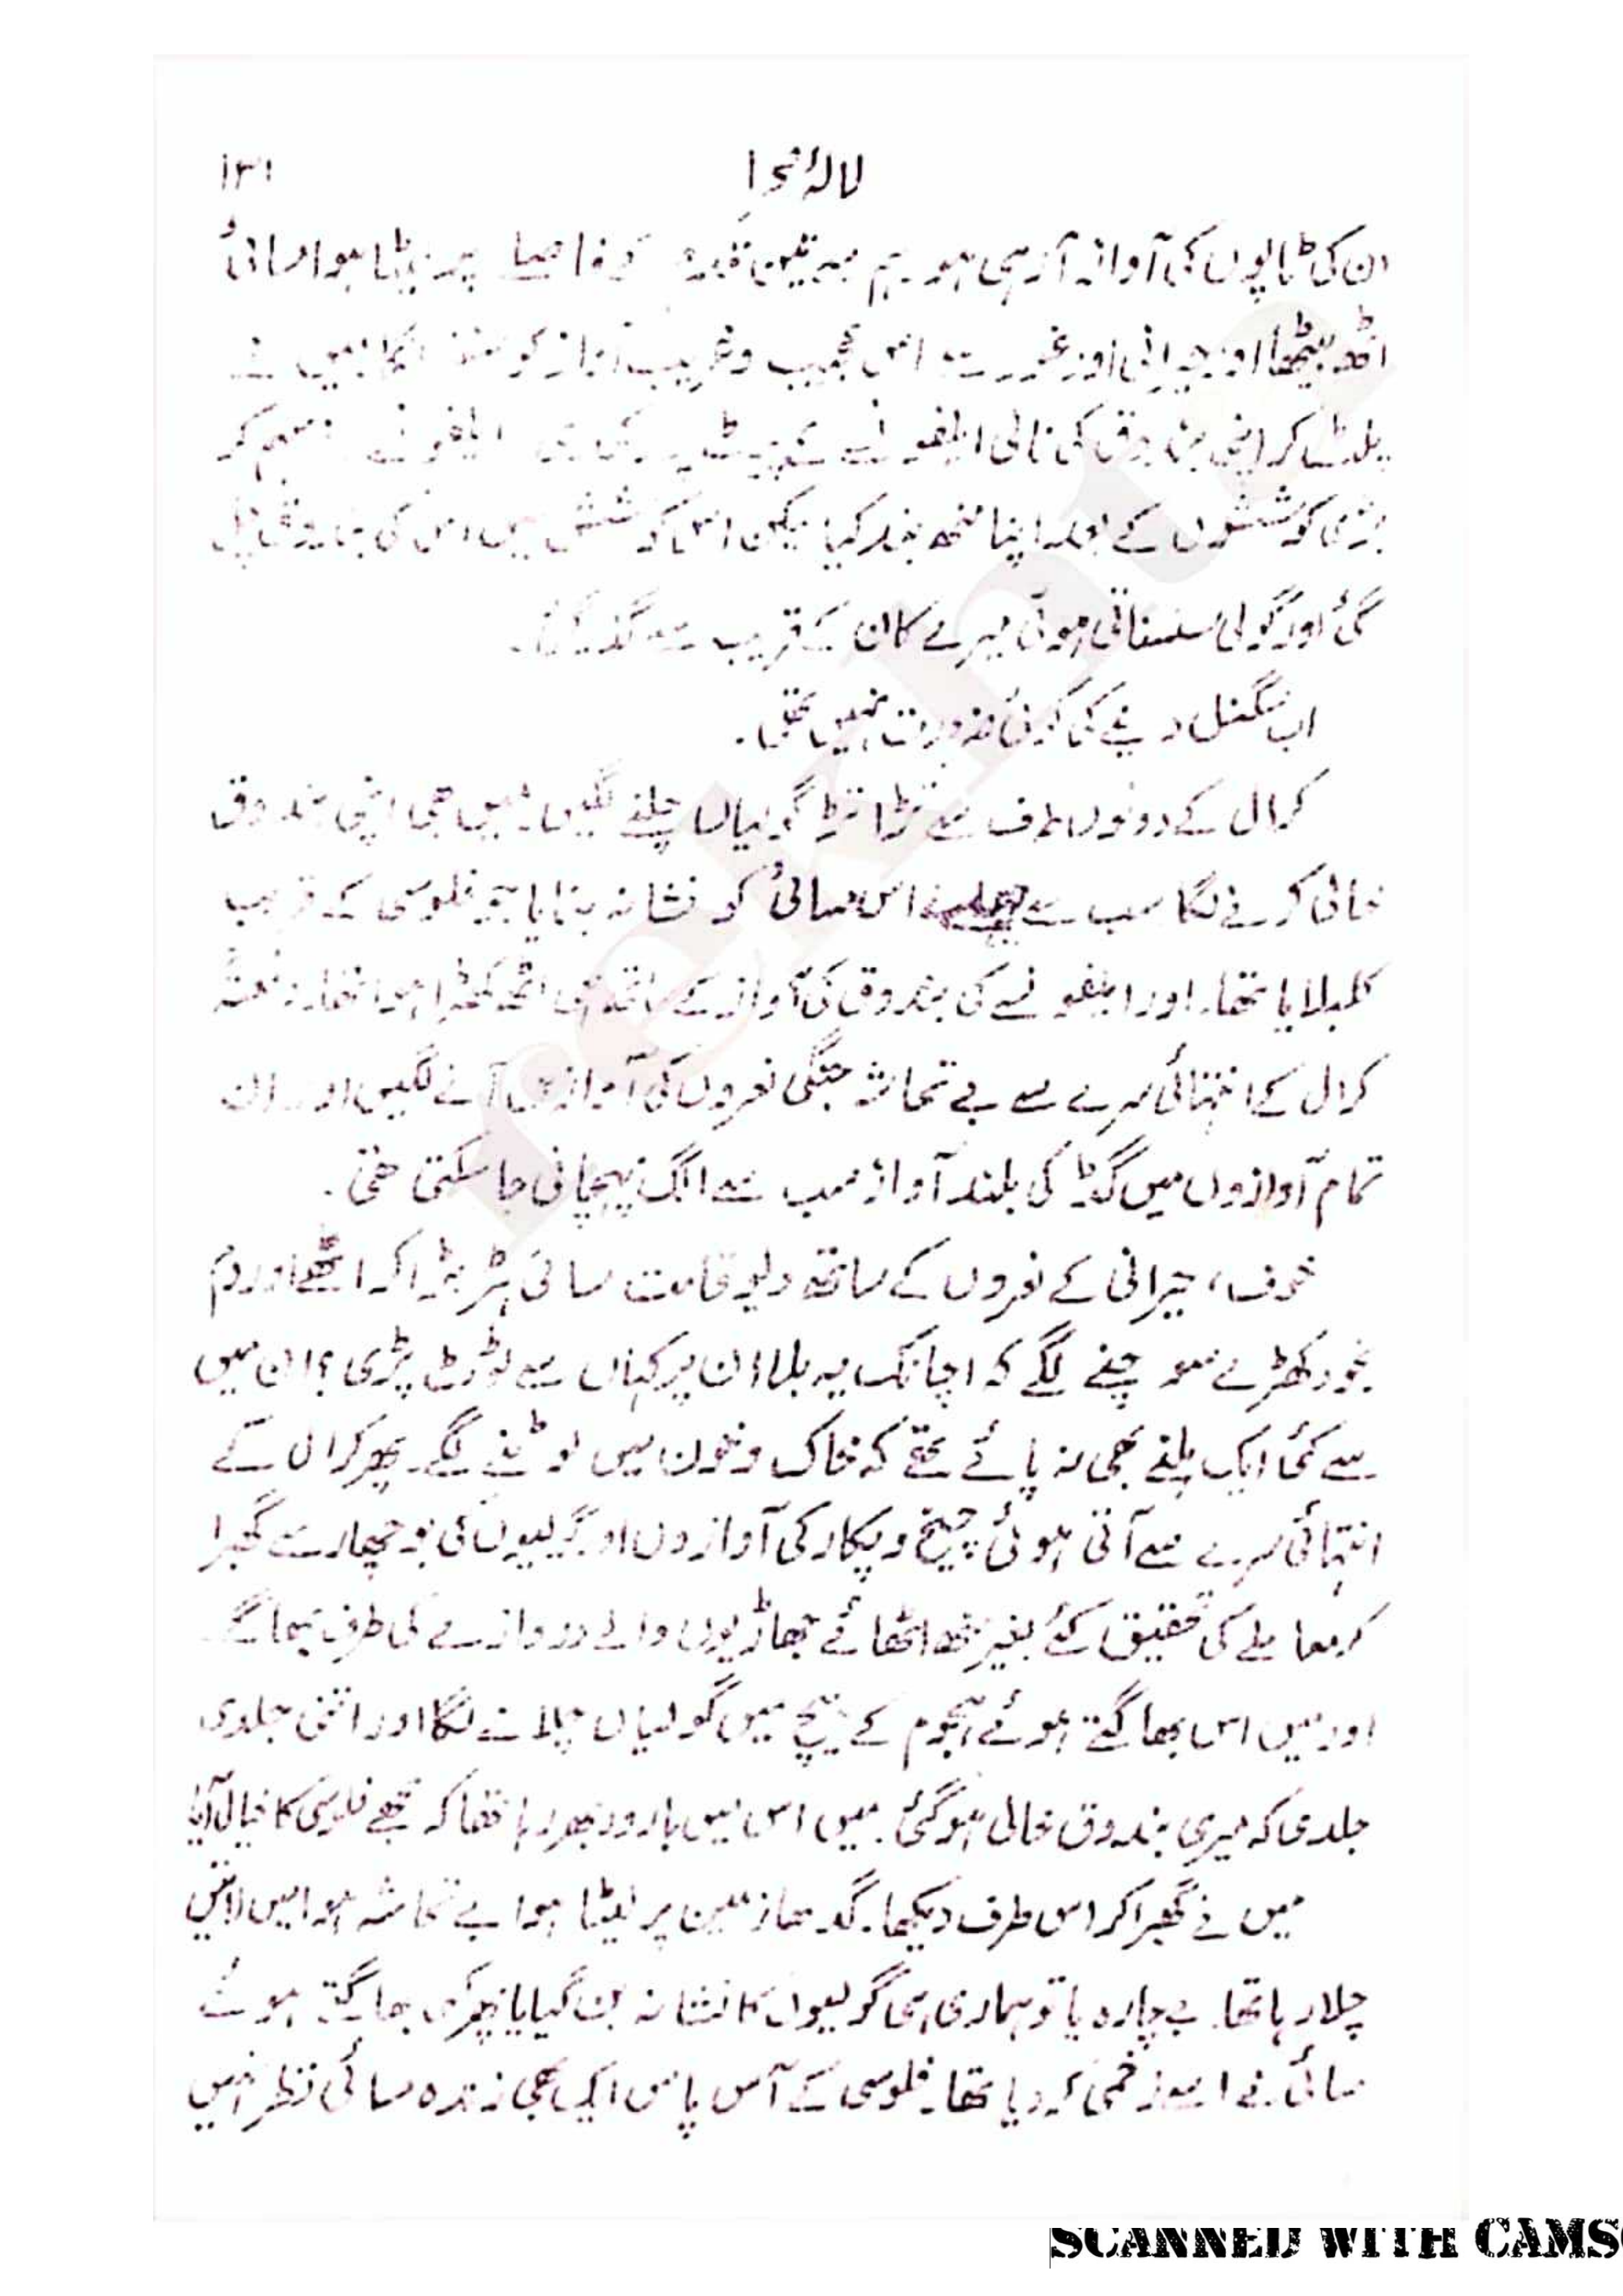 لالۂ صحرا
۱۳۱
ان کی ٹاپوں کی آواز آ رہی ہو۔ ہم سے تین قدم کے فاصلے پر لیٹا ہوا مسائی
اٹھ بیٹھا اور حیرانی اور غور سے اس عجیب و غریب آواز کو سننے لگا۔ میں نے
پلٹ کر اپنی بندوق کی نالی الفونسے کے پیٹ پر رکھ دی۔ الفونسے نے سہم کر
بڑی کوششوں کے بعد اپنا منھ بند کیا لیکن اس کوشش میں اس کی بندوق چل
گئی اور گولی سنسناتی ہوئی میرے کان کے قریب سے گذر گئی۔
اب سگنل دینے کی کوئی ضرورت نہیں تھی۔
کرال کے دونوں طرف سے تڑاتڑ گولیاں چلنے لگیں۔ میں بھی اپنی بندوق
خالی کرنے لگا سب سے پہلے اس مسائی کو نشانہ بنایا جو فلوسی کے قریب
کلبلایا تھا۔ اور الفونسے کی بندوق کی آواز کے ساتھ ہی اٹھ کھڑا ہوا تھا۔ دفعتہً
کرال کے انتہائی سرے سے بے تحاشہ جنگی نعروں کی آوازیں آنے لگیں اور ان
تمام آوازوں میں گڈ کی بلند آواز سب سے الگ پہچانی جا سکتی تھی۔
خوف، حیرانی کے نعروں کے ساتھ دیو قامت مسائی ہڑبڑا کر اٹھے اور دم
بخود کھڑے سوچنے لگے کہ اچانک یہ بلا ان پر کہاں سے ٹوٹ پڑی؟ ان میں
سے کئی ایک ہلنے بھی نہ پائے تھے کہ خاک و خون میں لوٹنے لگے۔ پھر کرال کے
انتہائی سرے سے آتی ہوئی چیخ و پکار کی آوازوں اور گولیوں کی بوچھار سے گھبرا
کر معاملے کی تحقیق کئے بغیر منھ اٹھائے جھاڑیوں والے دروازے کی طرف بھاگے
اور میں اس بھاگتے ہوئے ہجوم کے بیچ میں گولیاں چلانے لگا اور اتنی جلدی
جلدی کہ میری بندوق خالی ہو گئی۔ میں اس میں بارود بھر رہا تھا کہ مجھے فلوسی کا خیال آیا
میں نے گھبرا کر اس طرف دیکھا۔ گدھا زمین پر لیٹا ہوا بے تحاشہ ہوا میں لاتیں
چلا رہا تھا۔ بے چارہ یا تو ہماری ہی گولیوں کا نشانہ بن گیا یا پھر کسی بھاگتے ہوئے
مسائی نے اسے زخمی کر دیا تھا۔ فلوسی کے آس پاس ایک بھی زندہ مسائی نظر نہیں
rekhta
SCANNED WITH CAMS